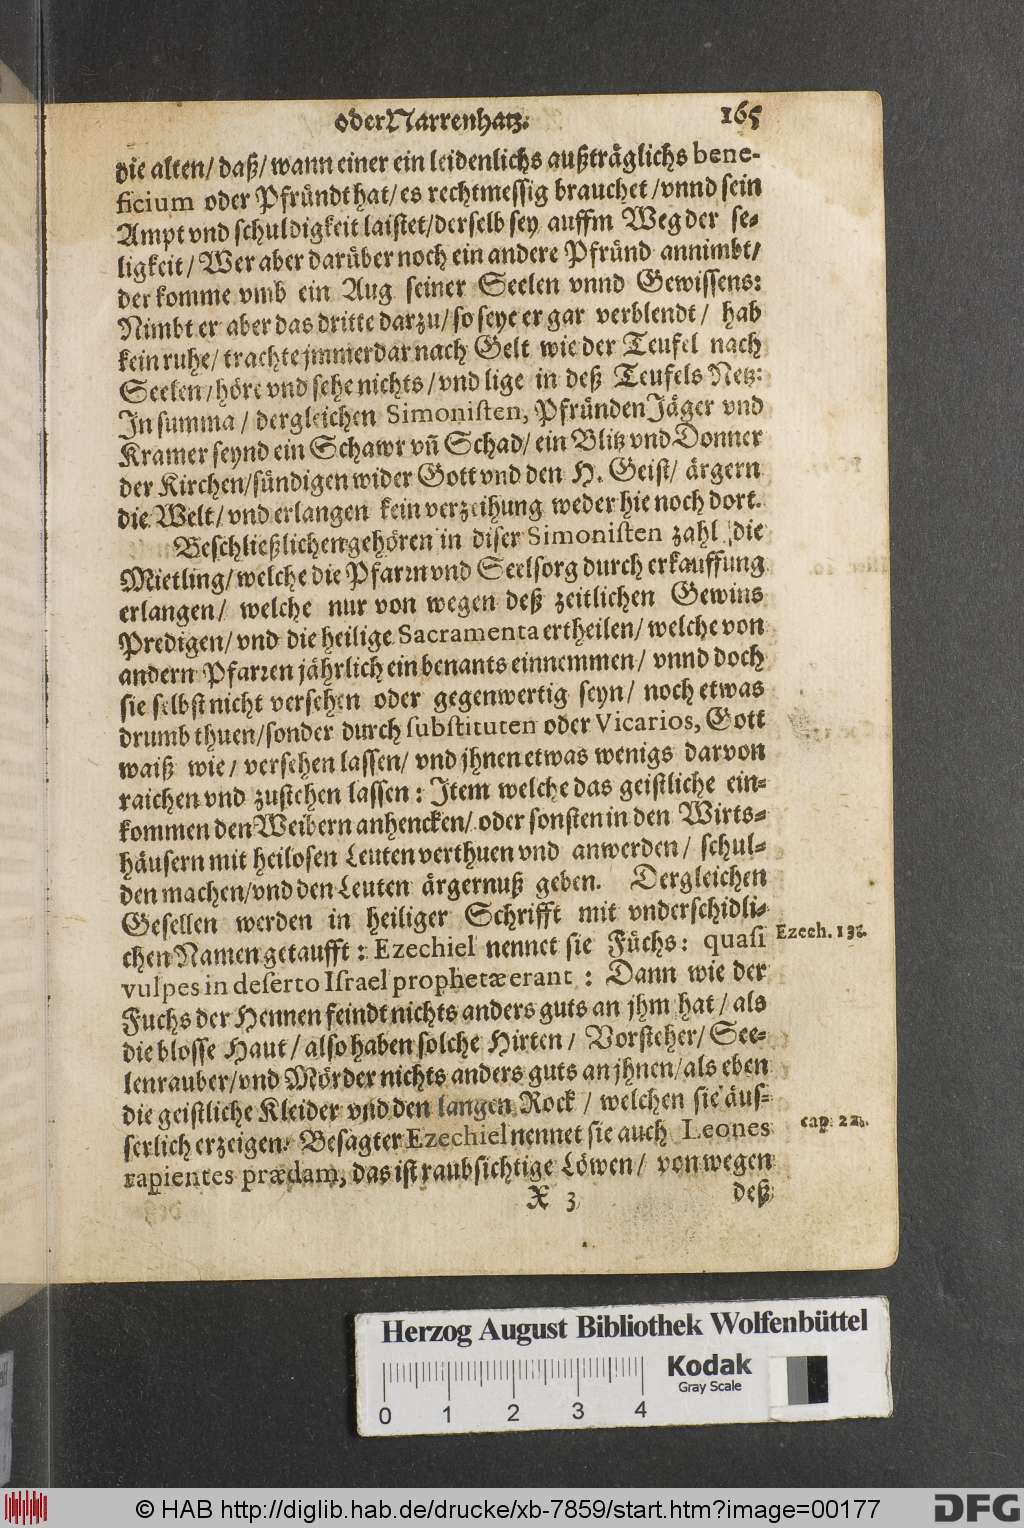 oder Narrenhatz. 165
die alten/ daß/ wann einer ein leidenlichs außträglichs bene-
ficium oder Pfründt hat/ es rechtmessig brauchet /vnnd sein
Ampt vnd schuldigkeit laistet/derselb sey auffm Weg der se-
ligkeit/ Wer aber darüber noch ein andere Pfründ annimbt/
der komme vmb ein Aug seiner Seelen vnnd Gewissens:
Nimbt er aber das dritte darzu/ so seye er gar verblendt / hab
kein ruhe/ trachte jmmerdar nach Gelt wie der Teufel nach
Seelen/höre vnd sehe nichts/vnd lige in deß Teufels Netz:
In summa / dergleichen Simonisten, Pfründen Jäger vnd
Kramer seynd ein Schawr vñ Schad/ ein Blitz vnd Donner
der Kirchen/sündigen wider Gott vnd den H. Geist/ ärgern
die Welt/ vnd erlangen kein verzeihung weder hie noch dort.
Beschließlichen gehören in diser Simonisten zahl die
Mietling/welche die Pfarrn vnd Seelsorg durch erkauffung
erlangen/ welche nur von wegen deß zeitlichen Gewins
Predigen/ vnd die heilige Sacramenta ertheilen/ welche von
andern Pfarren jährlich ein benants einnemmen/ vnnd doch
sie selbst nicht versehen oder gegenwertig seyn/ noch etwas
drumb thuen/sonder durch substituten oder Vicarios, Gott
waiß wie/ versehen lassen/ vnd jhnen etwas wenigs darvon
raichen vnd zustehen lassen: Item welche das geistliche ein-
kommen den Weibern anhencken/ oder sonsten in den Wirts-
häusern mit heilosen Leuten verthuen vnd anwerden/ schul-
den machen/vnd den Leuten ärgernuß geben. Dergleichen
Gesellen werden in heiliger Schrifft mit vnderschidli-
chen Namen getaufft: Ezechiel nennet sie Füchs: quasi
Ezech. 13.
vulpes in deserto Israel prophetæ erant : Dann wie der
Fuchs der Hennen feindt nichts anders guts an jhm hat/ als
die blosse Haut/ also haben solche Hirten/ Vorsteher/ See-
lenrauber/vnd Mörder nichts anders guts an jhnen/als eben
die geistliche Kleider vnd den langen Rock / welchen sie äus-
serlich erzeigen. Besagter Ezechiel nennet sie auch Leones
cap. 22.
rapientes prædam, das ist raubsichtige Löwen/ von wegen
X 3 deß
Herzog August Bibliothek Wolfenbüttel
0 1 2 3 4
Kodak
Gray Scale
© HAB http://diglib.hab.de/drucke/xb-7859/start.htm?image=00177
DFG